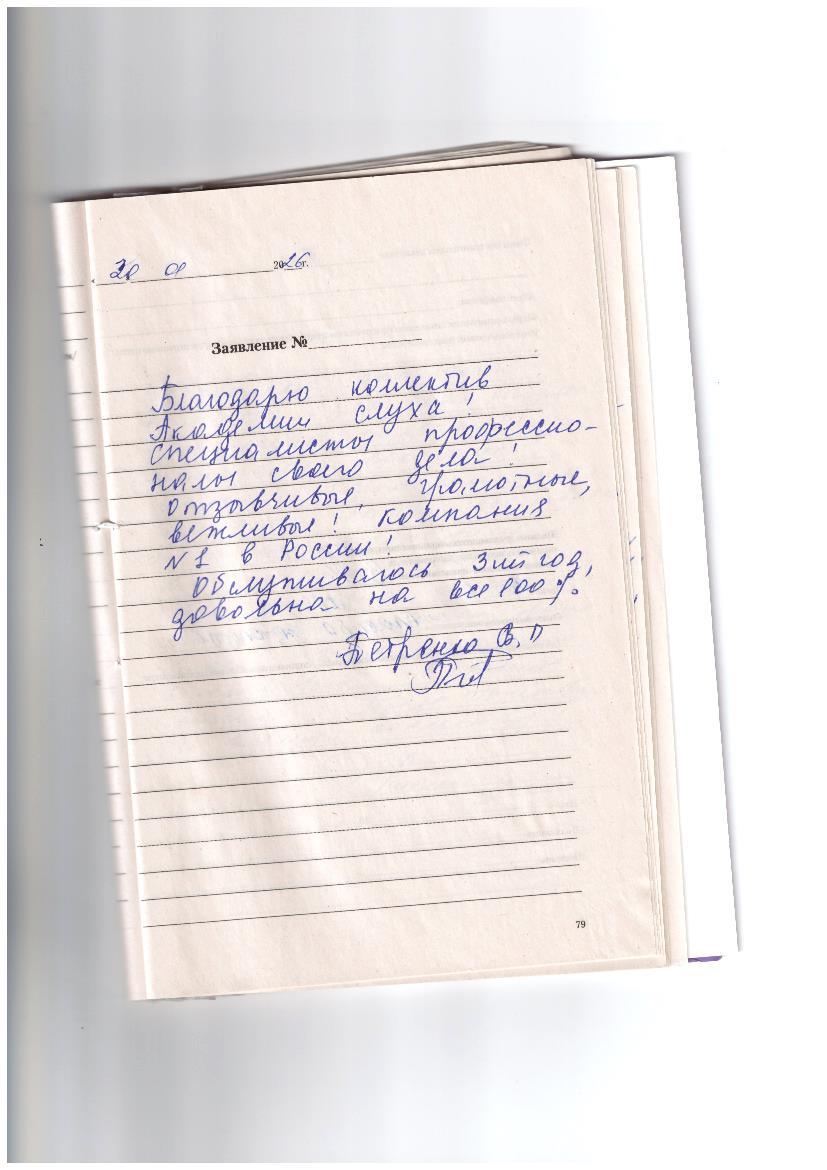 20 01 2026г.
Заявление №
Благодарю коллектив
Академии слуха!
Специалисты профессио-
налы своего дела!
отзывчивые, грамотные,
вежливые! Компания
№1 в России!
Обслуживаюсь 3ий год,
довольна на все 100%.
Петренко В. П
79